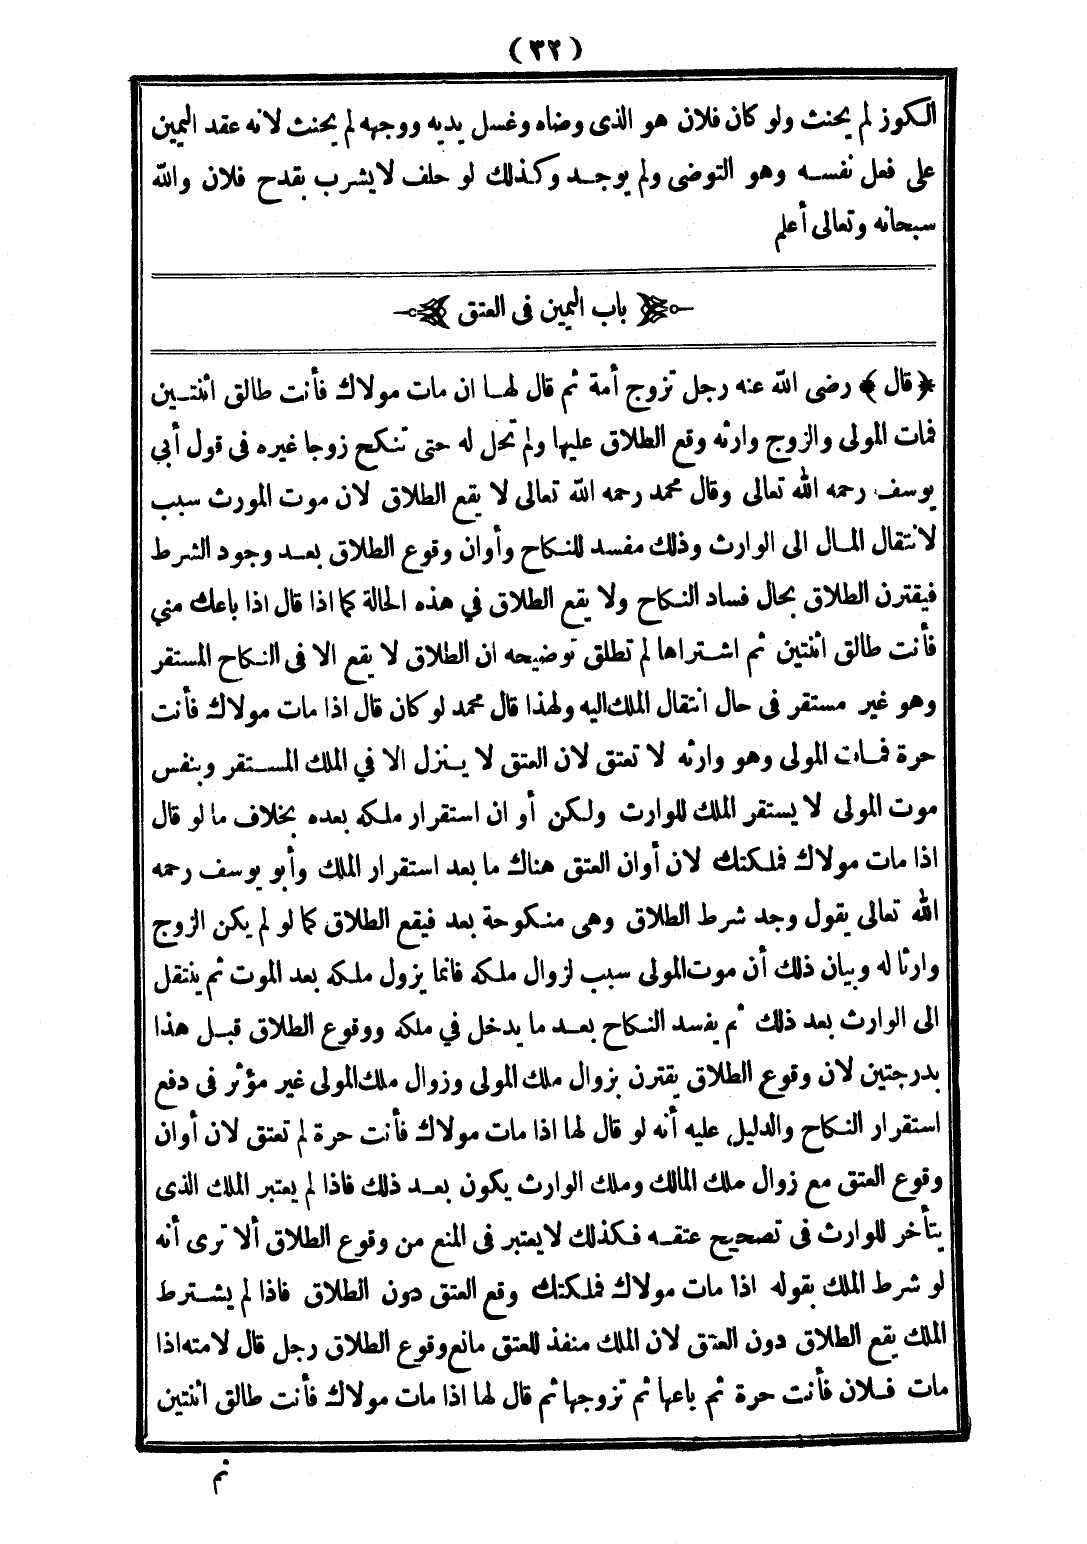 (٣٢)
الكوز لم يحنث ولو كان فلان هو الذى وضاه وغسل يديه ووجهه لم يحنث لانه عقد اليمين
على فعل نفسه وهو التوضى ولم يوجد وكذلك لو حلف لا يشرب بقدح فلان والله
سبحانه وتعالى أعلم
باب اليمين فى العتق
﴿قال﴾ رضى الله عنه رجل تزوج أمة ثم قال لها ان مات مولاك فأنت طالق اثنتين
فمات المولى والزوج وارثه وقع الطلاق عليها ولم تحل له حتى تنكح زوجا غيره فى قول أبي
يوسف رحمه الله تعالى وقال محمد رحمه الله تعالى لا يقع الطلاق لان موت المورث سبب
لانتقال المال الى الوارث وذلك مفسد للنكاح وأوان وقوع الطلاق بعد وجود الشرط
فيقترن الطلاق بحال فساد النكاح ولا يقع الطلاق في هذه الحالة كما اذا قال اذا باعك مني
فأنت طالق اثنتين ثم اشتراها لم تطلق توضيحه ان الطلاق لا يقع الا فى النكاح المستقر
وهو غير مستقر فى حال انتقال الملك اليه ولهذا قال محمد لو كان قال اذا مات مولاك فأنت
حرة فمات المولى وهو وارثه لا تعتق لان العتق لا ينزل الا في الملك المستقر وبنفس
موت المولى لا يستقر الملك للوارث ولكن أو ان استقرار ملكه بعده بخلاف ما لو قال
اذا مات مولاك فملكتك لان أوان العتق هناك ما بعد استقرار الملك وأبو يوسف رحمه
الله تعالى يقول وجد شرط الطلاق وهى منكوحة بعد فيقع الطلاق كما لو لم يكن الزوج
وارثا له وبيان ذلك أن موت المولى سبب لزوال ملكه فانما يزول ملكه بعد الموت ثم ينتقل
الى الوارث بعد ذلك ثم يفسد النكاح بعد ما يدخل في ملكه ووقوع الطلاق قبل هذا
بدرجتين لان وقوع الطلاق يقترن بزوال ملك المولى وزوال ملك المولى غير مؤثر فى دفع
استقرار النكاح والدليل عليه أنه لو قال لها اذا مات مولاك فأنت حرة لم تعتق لان أوان
وقوع العتق مع زوال ملك المالك وملك الوارث يكون بعد ذلك فاذا لم يعتبر الملك الذى
يتأخر للوارث فى تصحيح عتقه فكذلك لا يعتبر فى المنع من وقوع الطلاق ألا ترى أنه
لو شرط الملك بقوله اذا مات مولاك فملكتك وقع العتق دون الطلاق فاذا لم يشترط
الملك يقع الطلاق دون العتق لان الملك منفذ للعتق مانع وقوع الطلاق رجل قال لامته اذا
مات فلان فأنت حرة ثم باعها ثم تزوجها ثم قال لها اذا مات مولاك فأنت طالق اثنتين
ثم